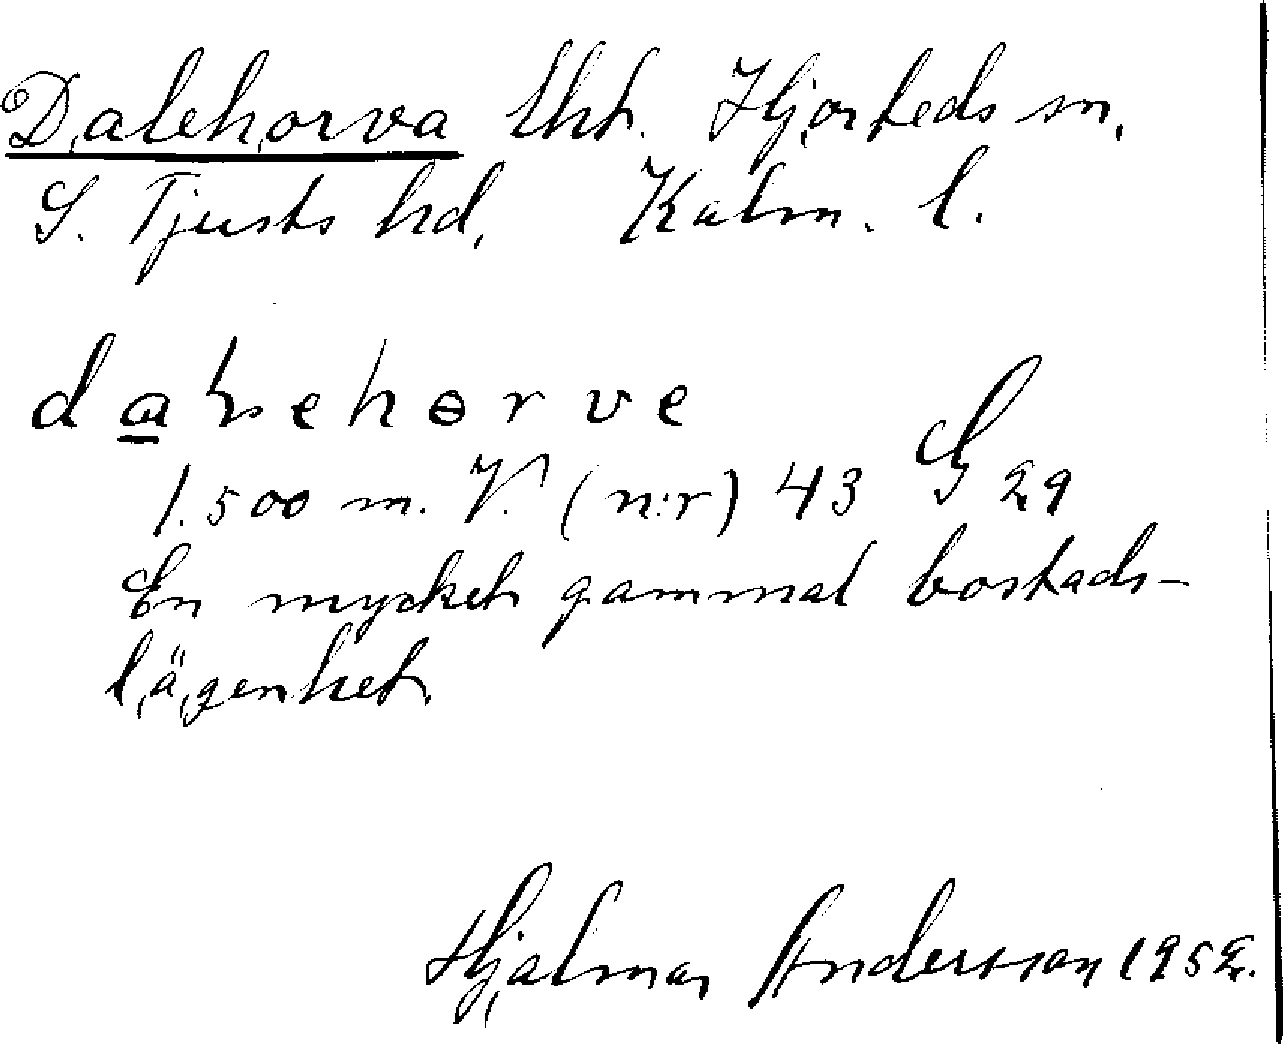 Dalehorva lht. Hjorteds sn.
S. Tjusts hd. Kalm. l.
1.500 m. V. (n:r) 43 G 29
En mycket gammal bostads-
lägenhet.
Hjalmar Andersson 1952.